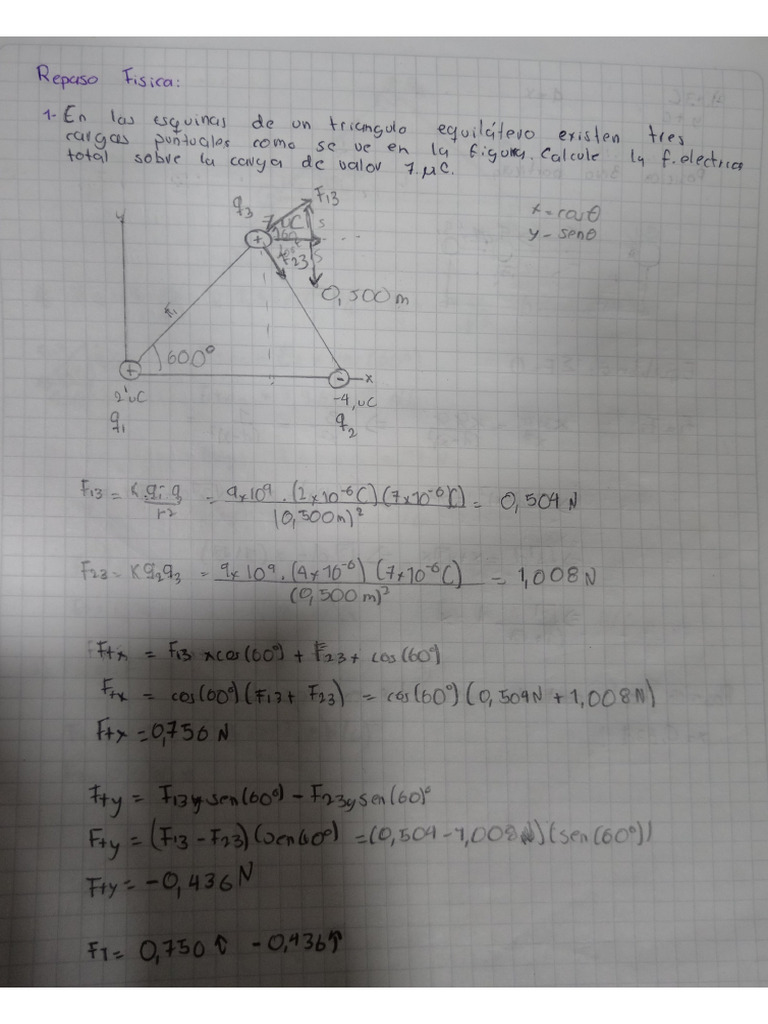 Repaso Fisica:
1- En las esquinas de un triangulo equilátero existen tres
cargas puntuales como se ve en la figura. Calcule la f. electrica
total sobre la carga de valor 7 μC.
x = cosθ
y - senθ
q3
F13
7 μC
F23
0,500 m
y
600°
x
2 μC
-4 μC
q1
q2
F13 = K q1 q3 / r2 = 9x10⁹ . (2x10⁻⁶C)(7x10⁻⁶C) / (0,500m)² = 0,504 N
F23 = K q2q3 = 9x10⁹ . (4x10⁻⁶) (7x10⁻⁶C) / (0,500m)² = 1,008 N
Ftx = F13 xcos(60°) + F23 + cos(60°)
Ftx = cos(60°)(F13 + F23) = cos(60°)(0,504N + 1,008N)
Ftx = 0,756 N
Fty = F13y sen(60°) - F23y sen(60)°
Fty = (F13 - F23)(sen60°) = (0,504 - 1,008N)(sen(60°))
Fty = -0,436 N
FT = 0,750 ↑ - 0,436 ↑